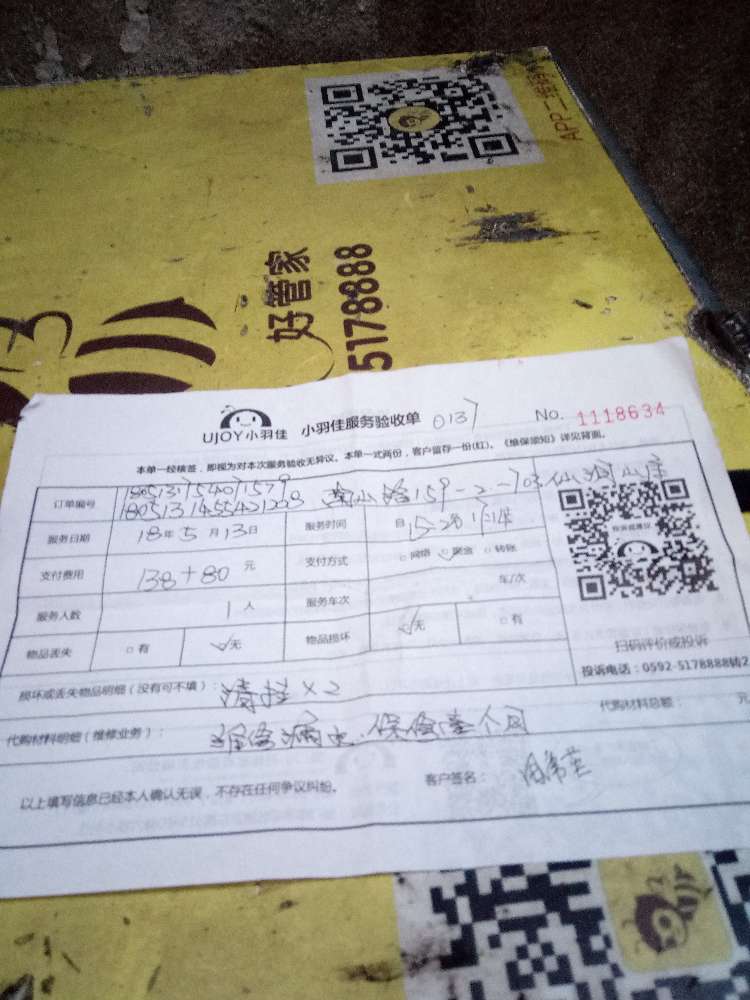 APP二维码
好管家
5178888
UJOY小羽佳 小羽佳服务验收单 0137 No. 1118634
本单一经核签,即视为对本次服务验收无异议。本单一式两份,客户留存一份(红)。《维保须知》详见背面。
订单编号 南山路159-2-703仙洞山庄
服务日期 18年5月13日 服务时间 自
支付费用 138+80 元 支付方式 网络 现金 转账
服务人数 1人 服务车次 车/次
物品丢失 有 无 物品损坏 无 有
扫码评价或投诉
投诉电话:0592-5178888转2
损坏或丢失物品明细(没有可不填): 清挂×2
代购材料总额: 元
代购材料明细(维修业务):
以上填写信息已经本人确认无误,不存在任何争议纠纷。 客户签名: